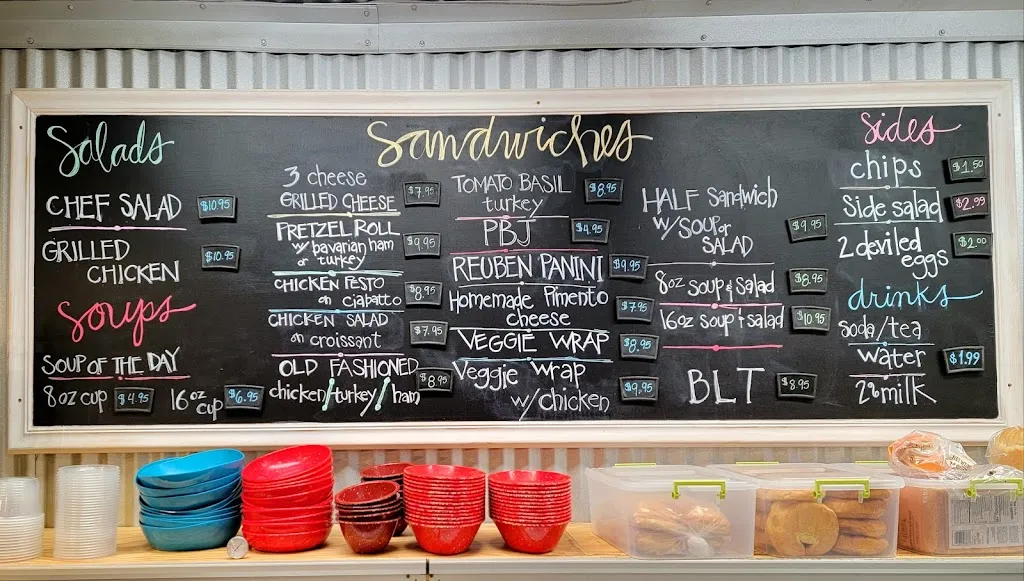 Salads
CHEF SALAD $10.95
GRILLED
CHICKEN $10.95
Soups
SOUP OF THE DAY
8oz cup $4.95 16oz cup $6.95
Sandwiches
3 cheese
GRILLED CHEESE $7.95
PRETZEL ROLL
w/ bavarian ham
or turkey $9.95
CHICKEN PESTO
on ciabatta $8.95
CHICKEN SALAD
on croissant $7.95
OLD FASHIONED
chicken/turkey/ham $8.95
TOMATO BASIL
turkey $8.95
PBJ $4.95
REUBEN PANINI $9.95
Homemade Pimento
cheese $7.95
VEGGIE WRAP $8.95
Veggie wrap
w/chicken $9.95
HALF Sandwich
w/ SOUP or
SALAD $9.95
8oz soup & salad $8.95
16oz soup & salad $10.95
BLT $8.95
Sides
chips $1.50
Side salad $2.99
2 deviled
eggs $2.00
drinks
soda/tea
water $1.99
2% milk